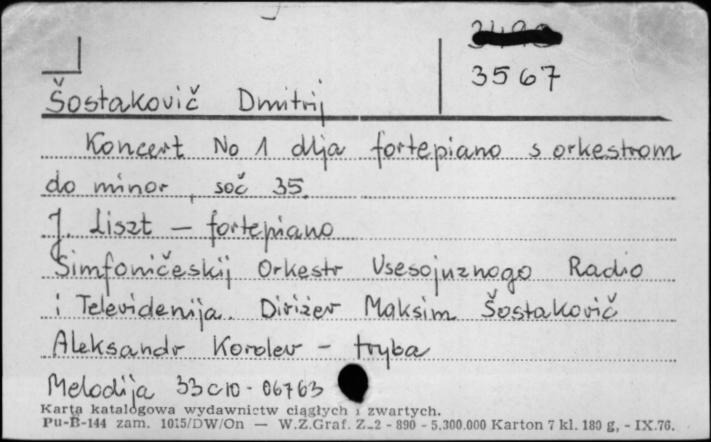 3567
Šostakovič Dmitrij
Koncert No 1 dlja fortepiano s orkestrom
do minor, soč 35.
J. Liszt — fortepiano
Simfoničeskij Orkestr Vsesojuznogo Radio
i Televidenija. Dirižer Maksim Šostakovič
Aleksandr Korolev – truba
Melodija 33c10-06763
Karta katalogowa wydawnictw ciągłych i zwartych.
Pu-B-144 zam. 1015/DW/On — W.Z.Graf. Z-2 - 890 - 5.300.000 Karton 7 kl. 180 g, - IX.76.